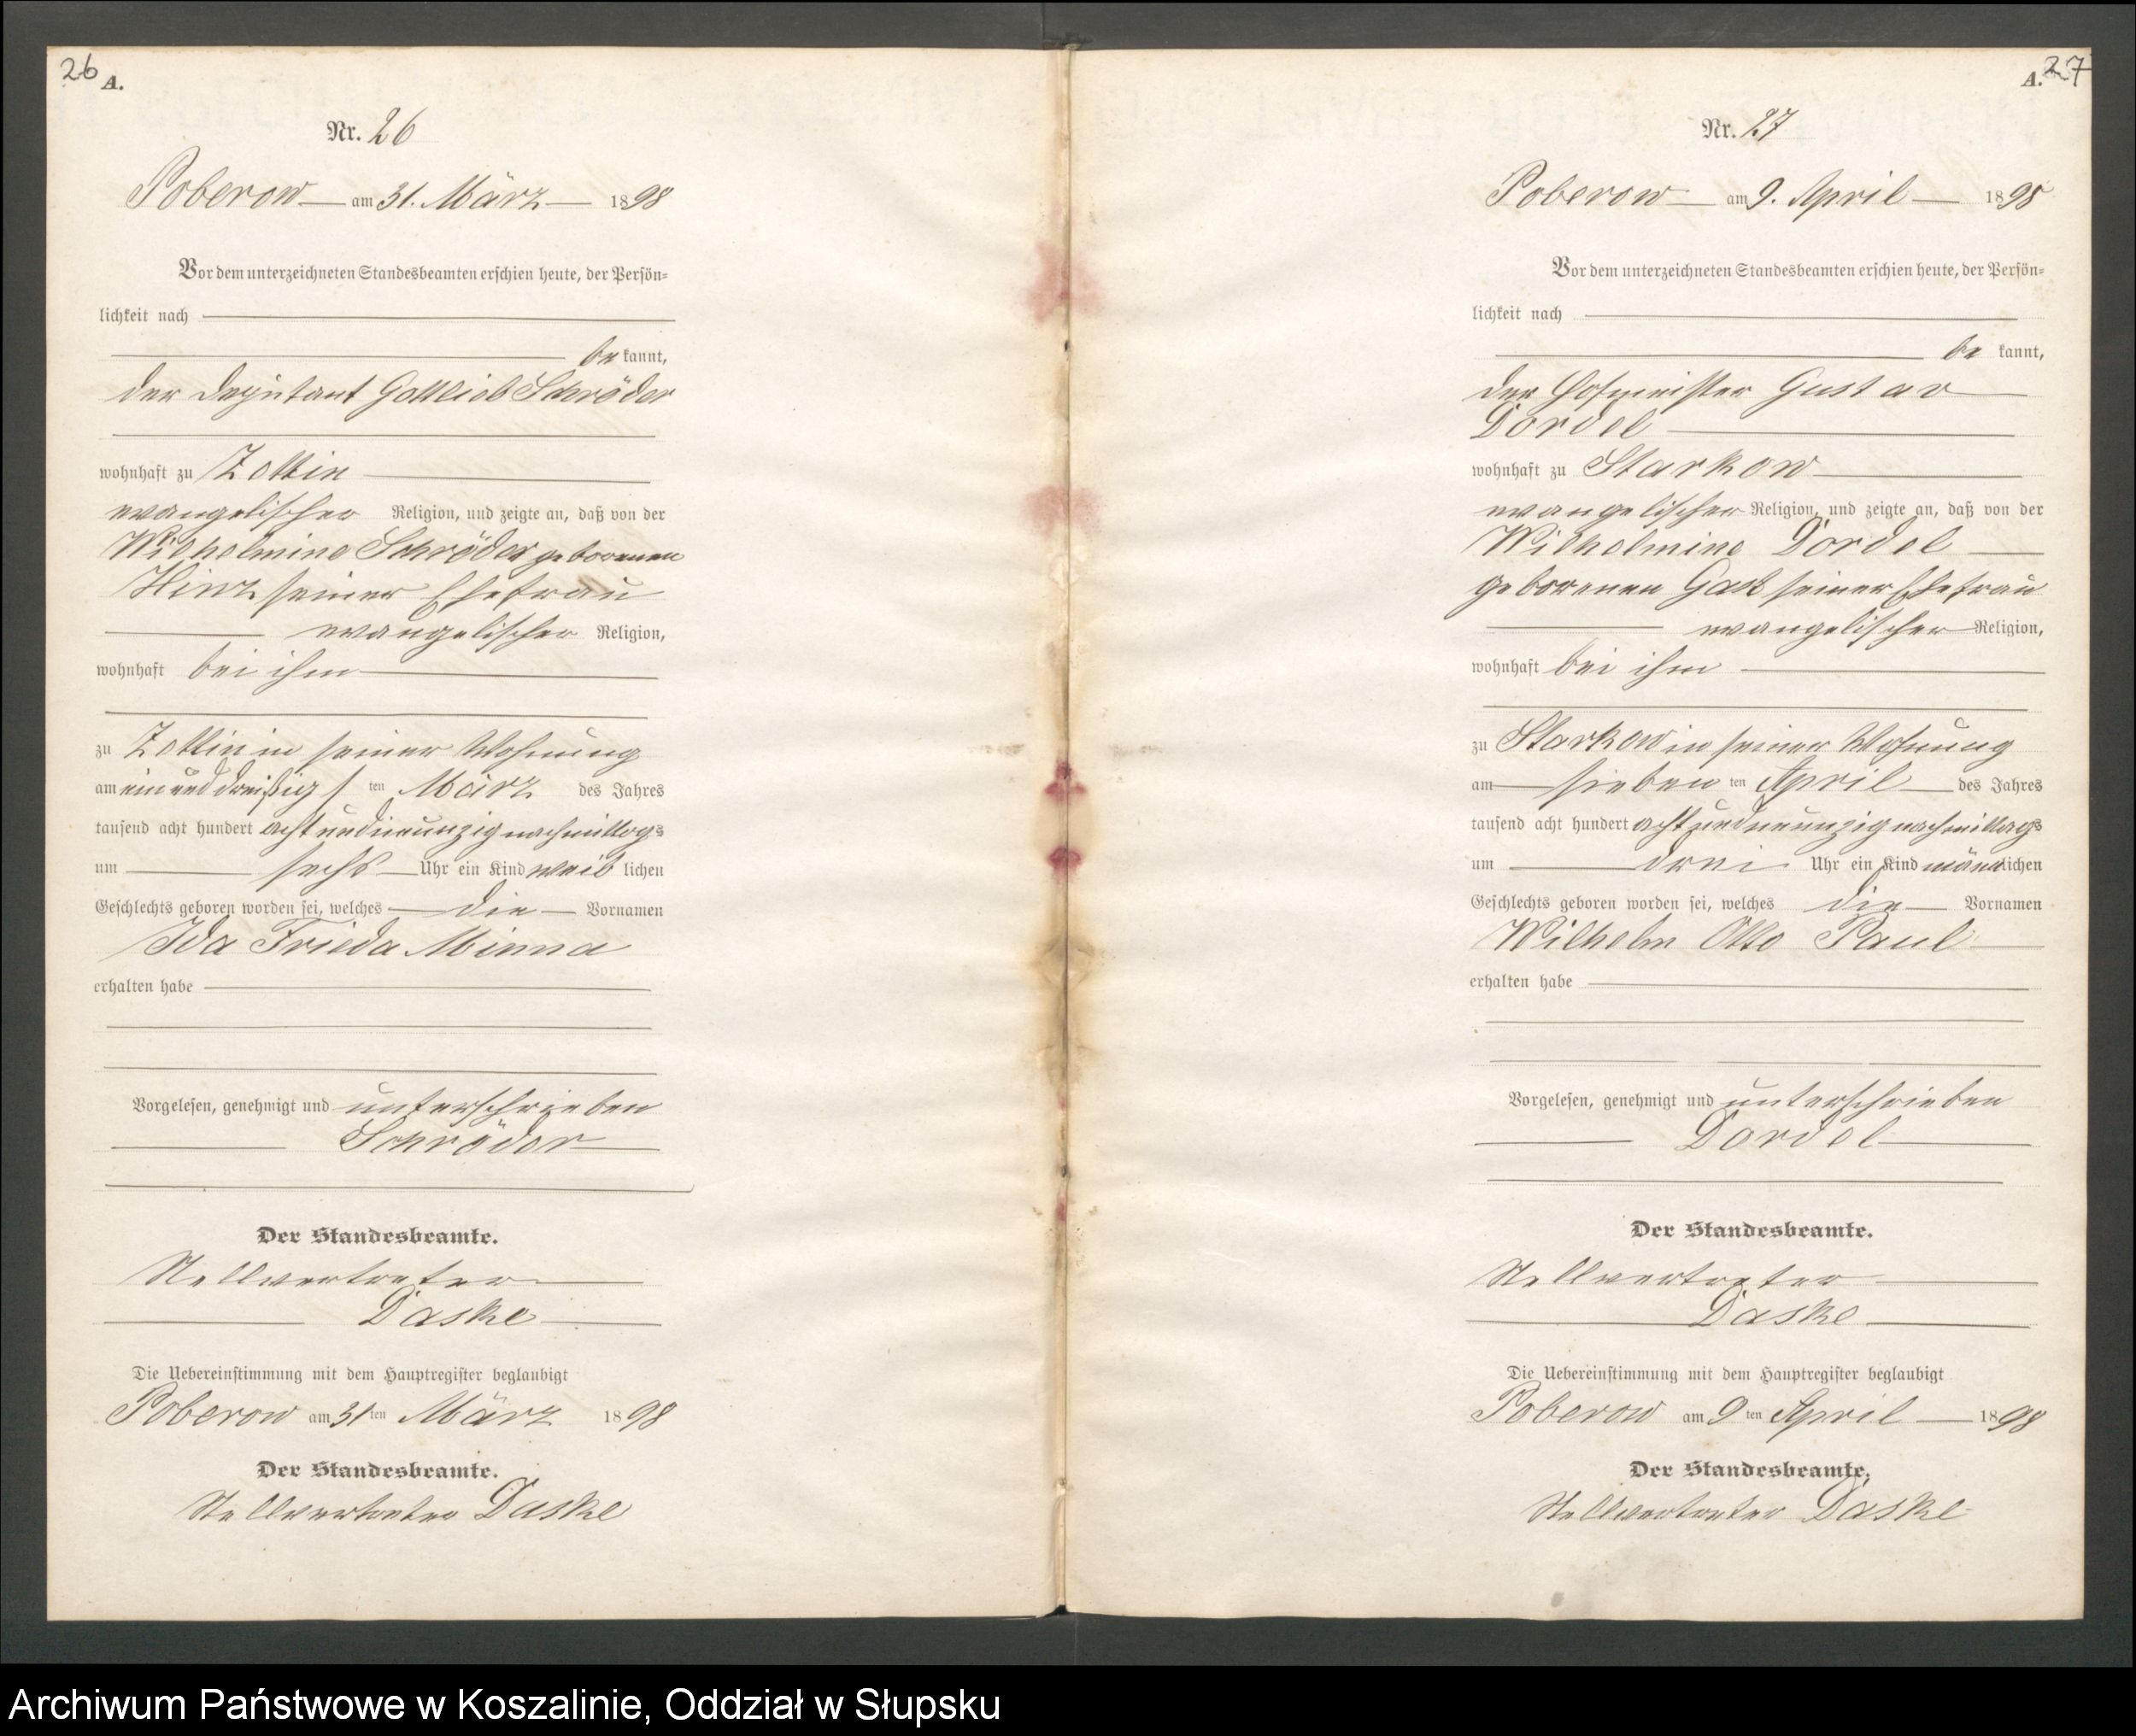 26 A.
Nr. 26
Poberow am 31. März 1898
Vor dem unterzeichneten Standesbeamten erschien heute, der Persön-
lichkeit nach
be kannt,
der Deputant Gottlieb Schröder
wohnhaft zu Zettin
evangelischer Religion, und zeigte an, daß von der
Wilhelmine Schröder geborenen
Hinz seiner Ehefrau
evangelischer Religion,
wohnhaft bei ihm
zu Zettin in seiner Wohnung
am ein und dreißigsten März des Jahres
tausend acht hundert acht und neunzig nachmittags
um sechs Uhr ein Kind weiblichen
Geschlechts geboren worden sei, welches die Vornamen
Ida Frieda Minna
erhalten habe
Vorgelesen, genehmigt und unterschrieben
Schröder
Der Standesbeamte.
Stellvertreter
Daske
Die Uebereinstimmung mit dem Hauptregister beglaubigt
Poberow am 31ten März 1898
Der Standesbeamte.
Stellvertreter Daske
A. 27
Nr. 27
Poberow am 9. April 1898
Vor dem unterzeichneten Standesbeamten erschien heute, der Persön-
lichkeit nach
be kannt,
der Hofmeister Gustav
Dordel
wohnhaft zu Starkow
evangelischer Religion, und zeigte an, daß von der
Wilhelmine Dordel
geborenen seiner Ehefrau
evangelischer Religion,
wohnhaft bei ihm
zu Starkow in seiner Wohnung
am siebenten April des Jahres
tausend acht hundert acht und neunzig nachmittags
um drei Uhr ein Kind männlichen
Geschlechts geboren worden sei, welches die Vornamen
Wilhelm Otto Paul
erhalten habe
Vorgelesen, genehmigt und unterschrieben
Dordel
Der Standesbeamte.
Stellvertreter
Daske
Die Uebereinstimmung mit dem Hauptregister beglaubigt
Poberow am 9ten April 1898
Der Standesbeamte.
Stellvertreter Daske
Archiwum Państwowe w Koszalinie, Oddział w Słupsku